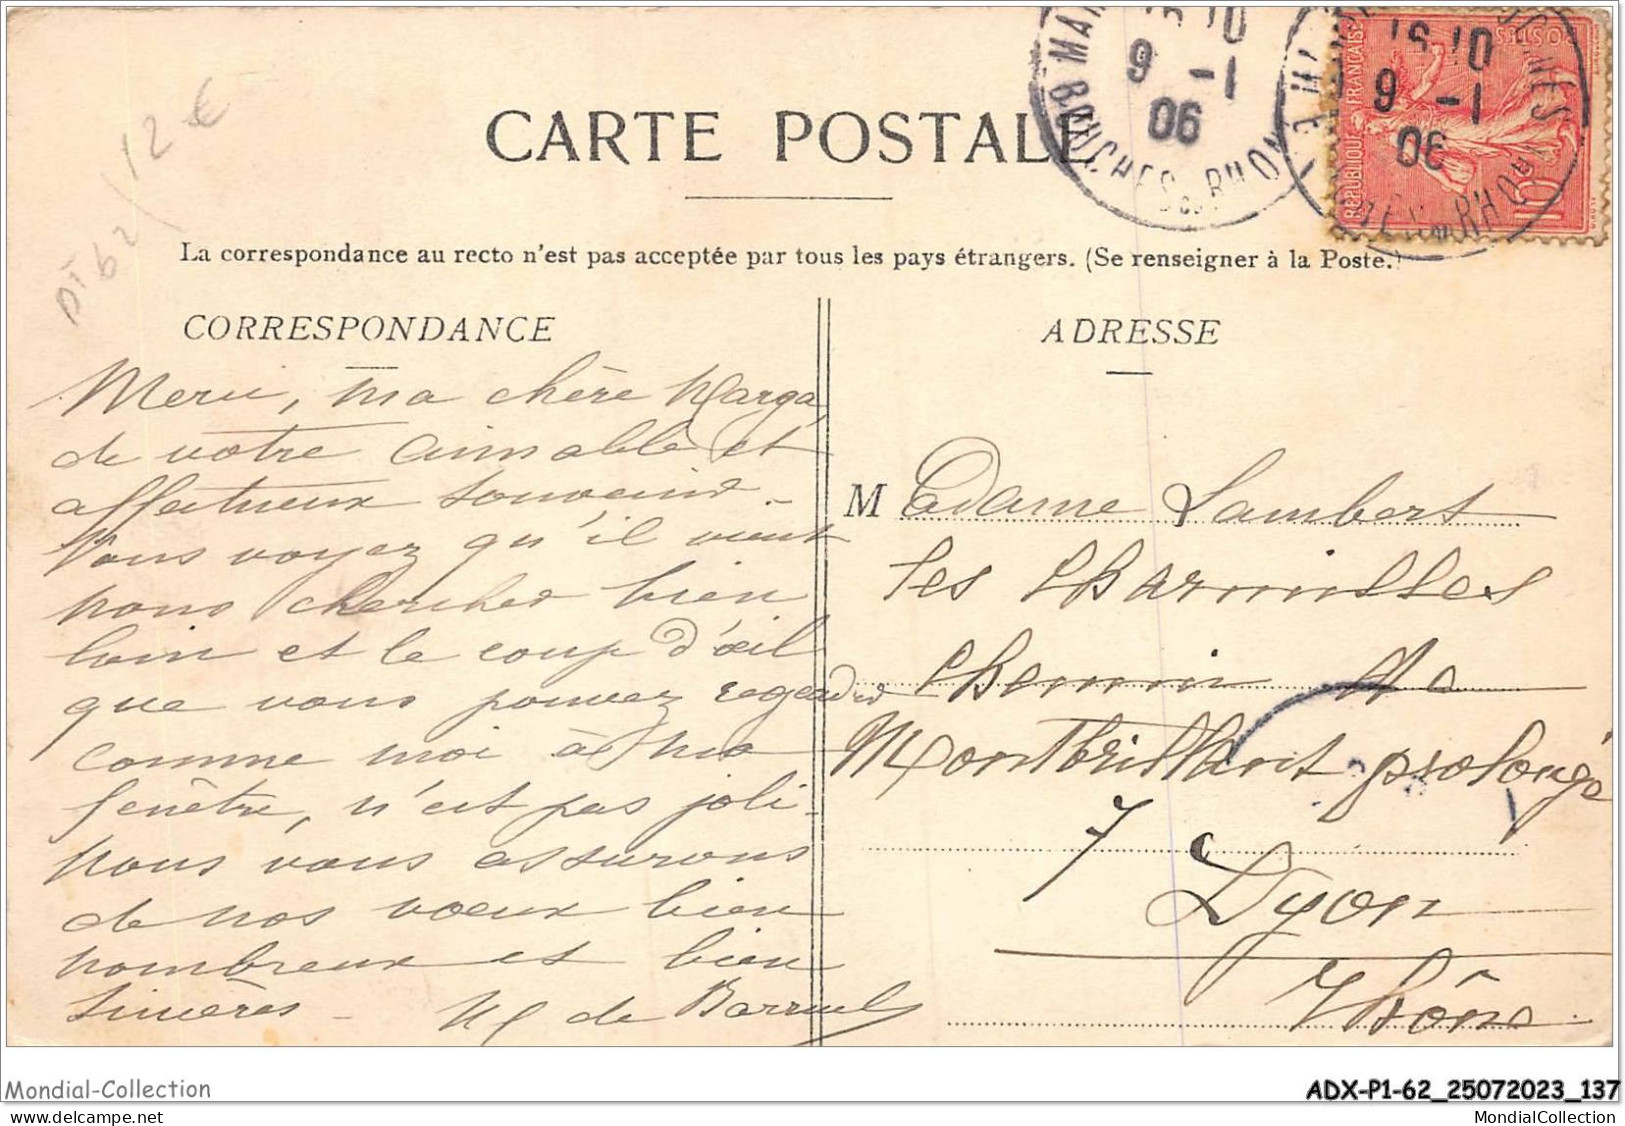 CARTE POSTALE
16 10
9 -1
06
BOUCHES DU RHONE
16 10
9 -1
06
POSTES
REPUBLIQUE FRANÇAISE
10c
DT 62 / 12 €
La correspondance au recto n'est pas acceptée par tous les pays étrangers. (Se renseigner à la Poste.)
CORRESPONDANCE
ADRESSE
Merci, ma chère Marga,
de votre aimable et
affectueux souvenir.
Vous voyez qu'il vient
nous chercher bien
loin et le coup d'œil
que vous pouvez regarder
comme moi à ma
fenêtre, n'est pas joli.
Nous vous assurons
de nos vœux bien
nombreux et bien
sincères - M de
Madame Lambert
Les Charmilles
Chemin de
Montbrillant prolongé
7
Lyon
Rhône
Mondial-Collection
ADX-P1-62_25072023_137
www.delcampe.net/fr/collections/store/Mondial-Collection
MondialCollection